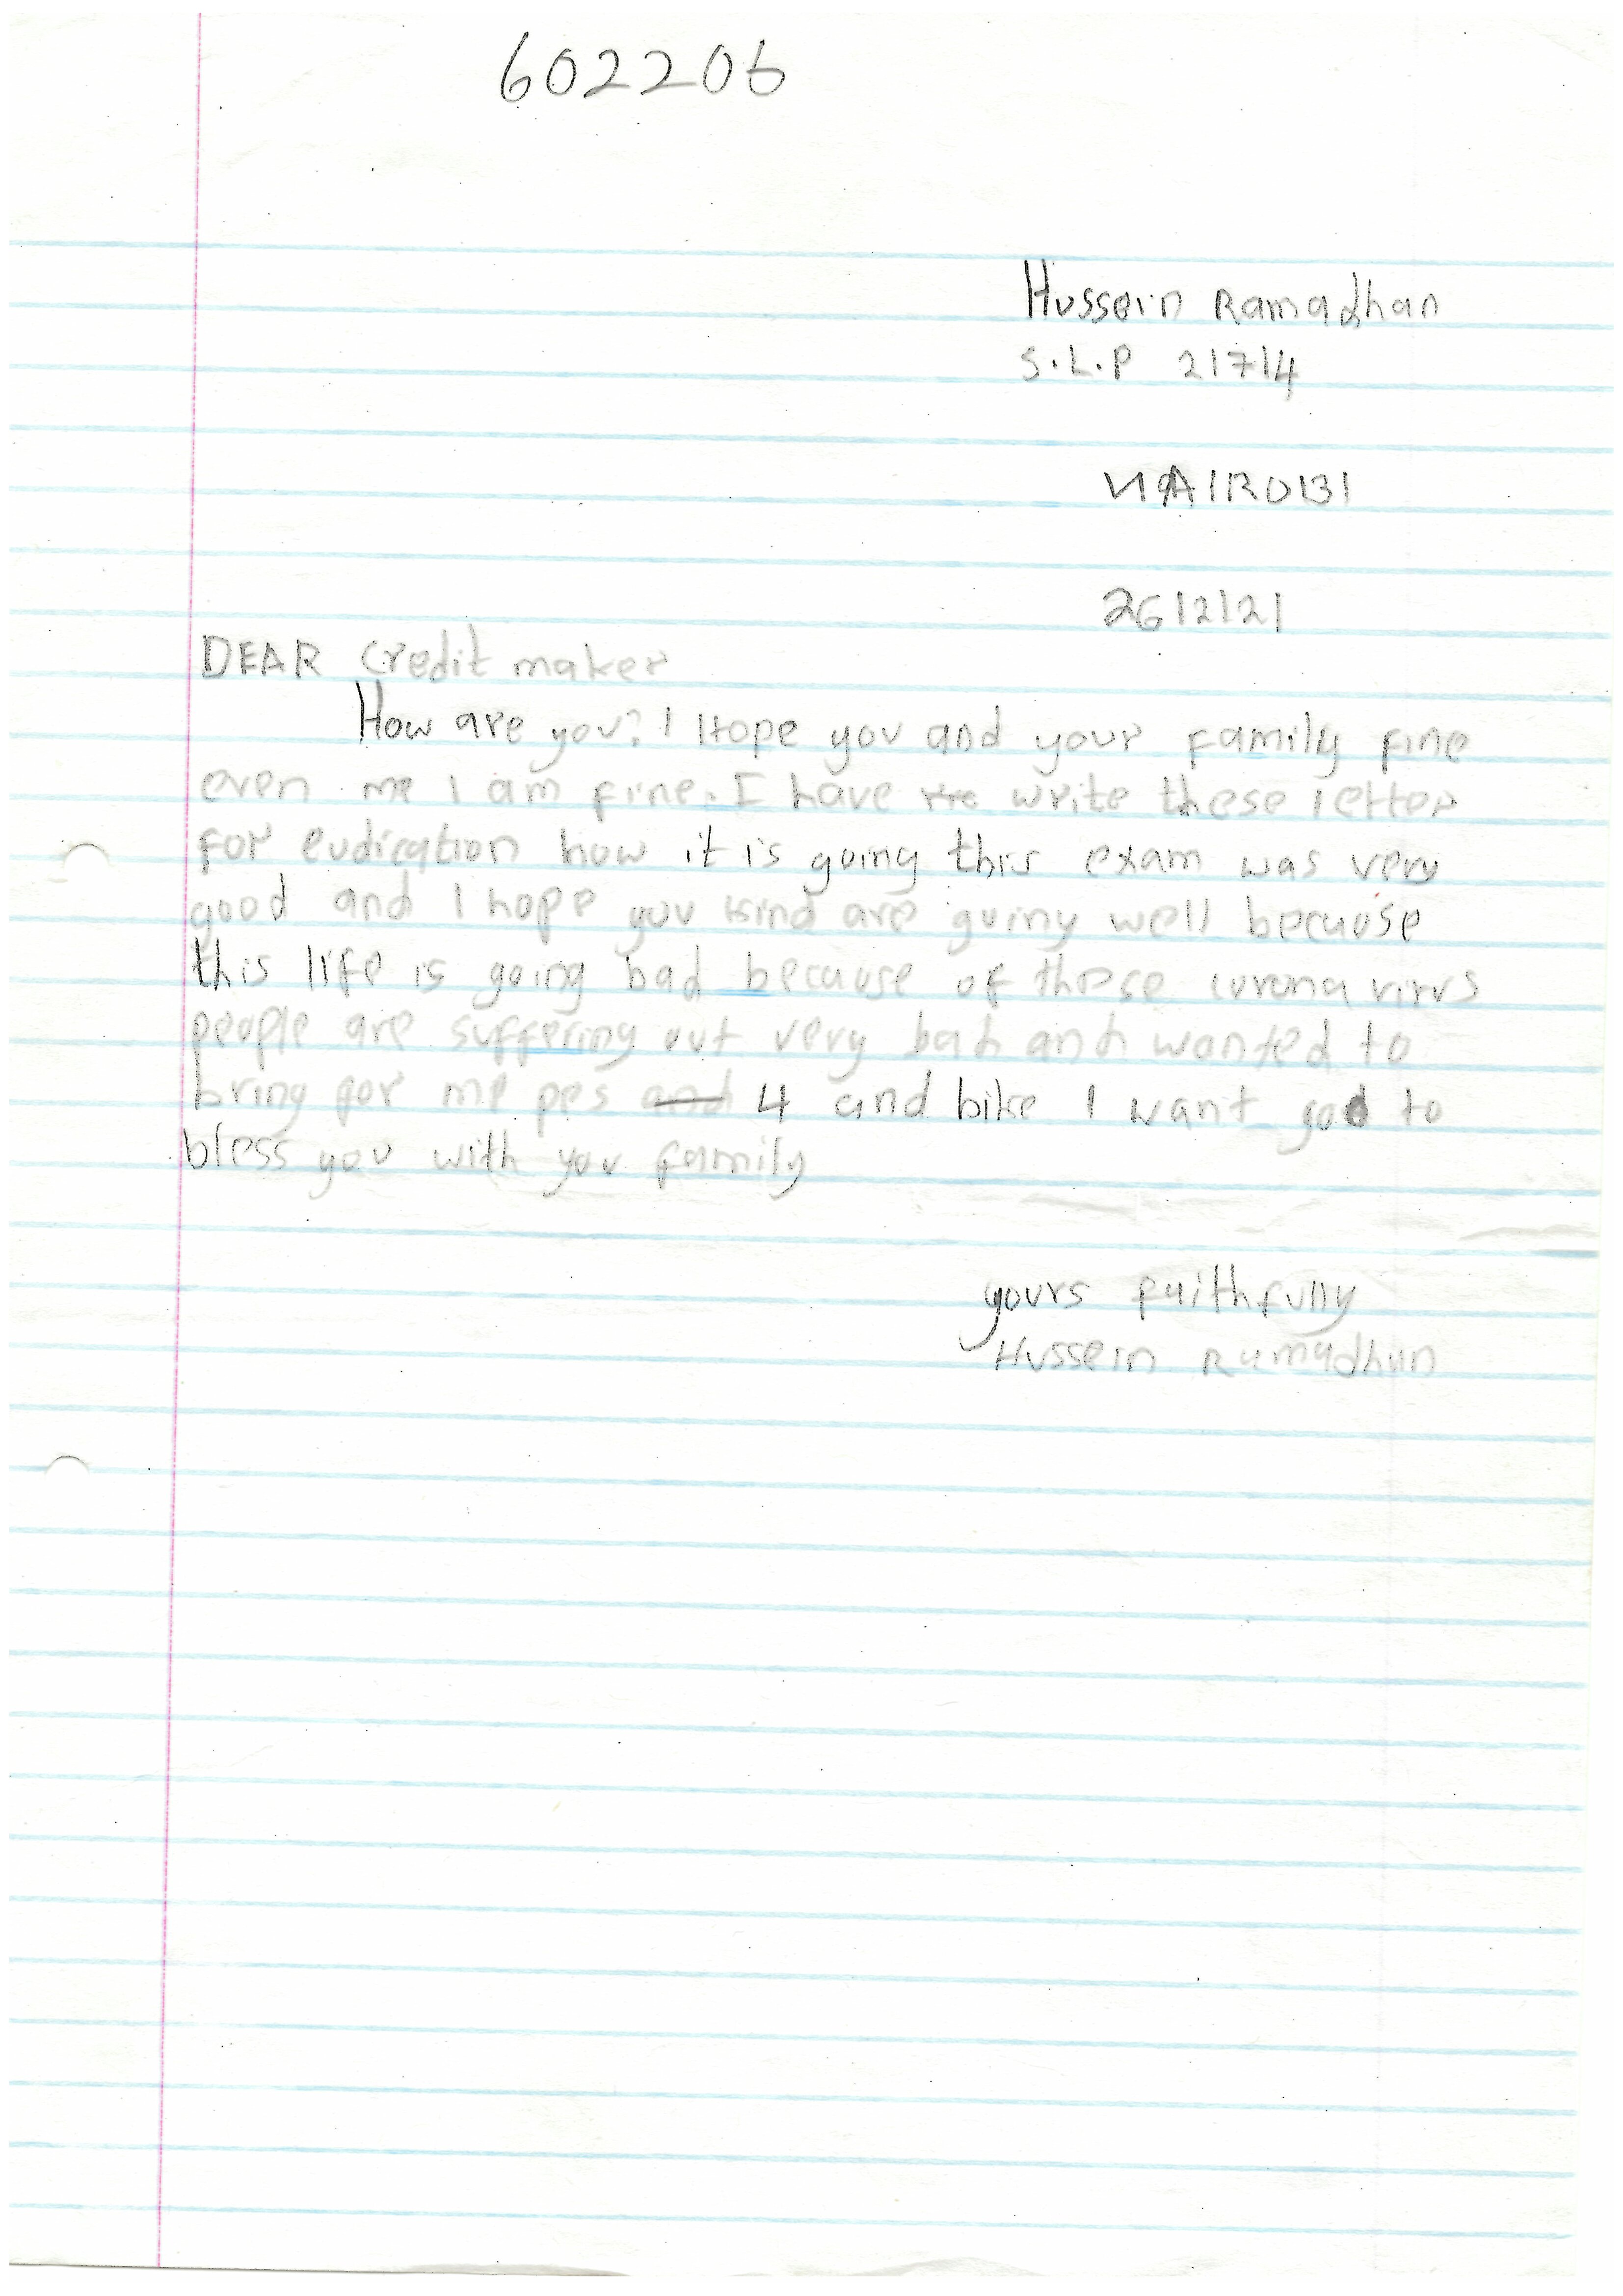 602206
Hussein Ramadhan
S.L.P 21714
NAIROBI
26/2/21
DEAR Credit maker
How are you? I Hope you and your family fine
even me I am fine. I have write these letter
for eudication how it is going this exam was very
good and I hope you kind are going well becuose
this life is going bad because of these corona virus
people are suffering out very bah anh wanted to
bring for me pes and 4 and bike I want god to
bless you with you family
yours faithfully
Hussein Ramadhan